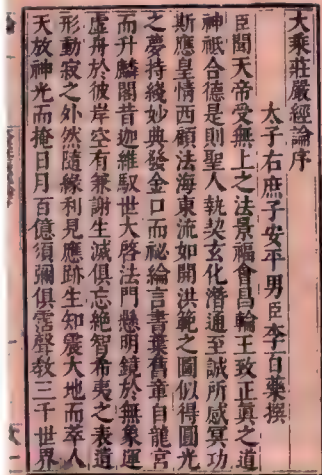 大乘莊嚴經論序
太子右庶子安平男臣李百藥撰
臣聞天帝受無上之法景福會昌輪王致正真之道
神祇合德是則聖人執契玄化潛通至誠所感冥功
斯應皇情西顧法海東流如開洪範之圖似得圓光
之夢持綫妙典發金口而祕綸言書葉舊章自龍宮
而升麟閣昔迦維馭世大啓法門懸明鏡於無象運
虛舟於彼岸空有兼謝生滅俱忘絕智希夷之表遺
形動寂之外然隨緣利見應跡生知震大地而萃人
天放神光而掩日月百億須彌俱霑聲教三千世界